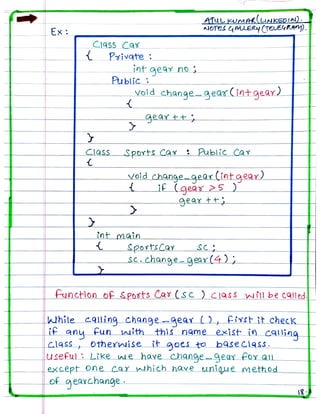 ATUL KUMAR (LINKEDIN).
NOTES GALLERY (TELEGRAM).
Ex :
Class Car
{ Private :
int gear no ;
Public :
void change_gear (int gear)
{
gear ++ ;
}
}
Class Sports Car : Public Car
{
void change_gear (int gear)
{ if ( gear >5 )
gear ++;
}
}
int main
{ SportsCar sc ;
sc. change_gear (4) ;
}
Function of Sports Car (sc ) class will be called
While calling change_gear ( ), first it check
if any fun with this name exist in calling
class , otherwise it goes to base class.
Useful : Like we have change_gear for all
except one car which have unique method
of gearchange.
18